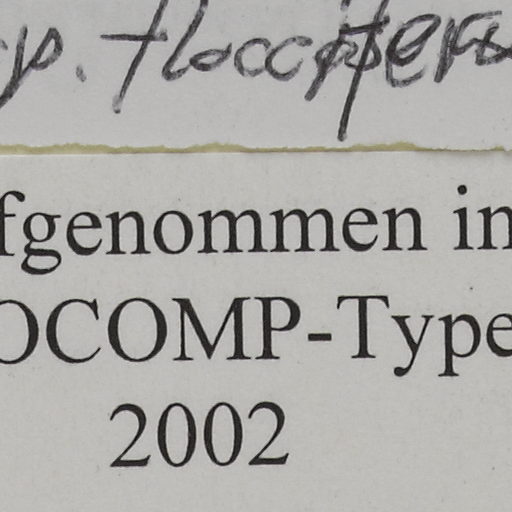 sp. floccifera
fgenommen in
OCOMP-Type
2002